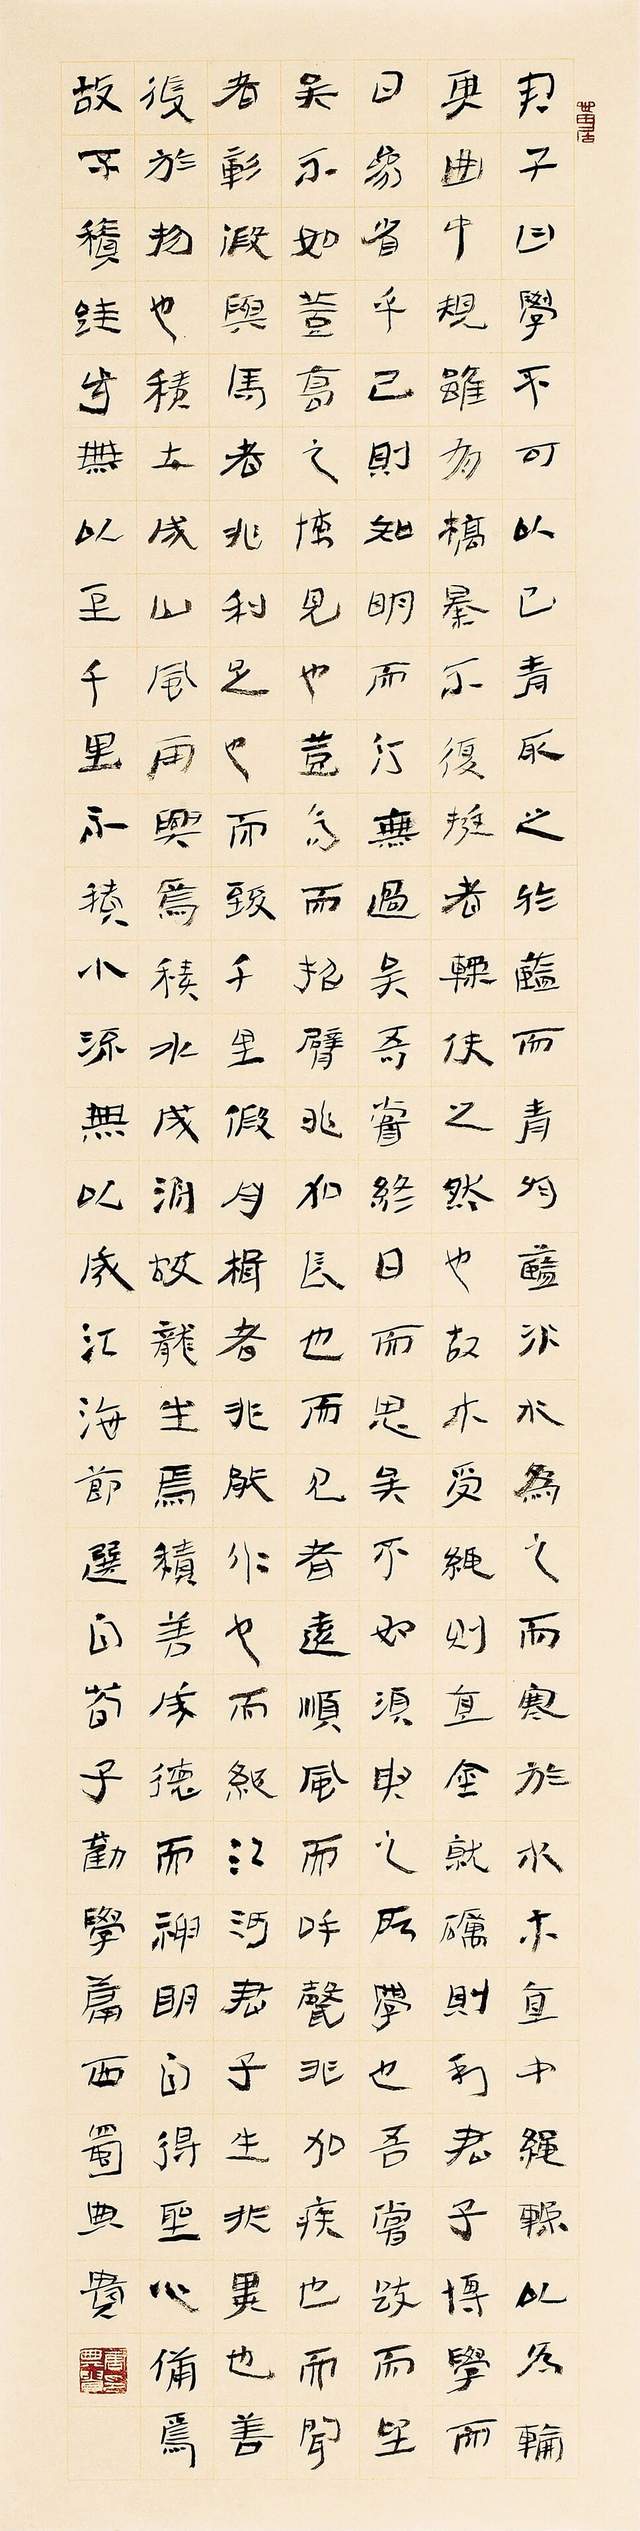 君子曰學不可以已青取之於藍而青於藍冰水為之而寒於水木直中繩輮以為輪
其曲中規雖有槁暴不復挺者輮使之然也故木受繩則直金就礪則利君子博學而
日參省乎己則知明而行無過矣吾嘗終日而思矣不如須臾之所學也吾嘗跂而望
矣不如登高之博見也登高而招臂非加長也而見者遠順風而呼聲非加疾也而聞
者彰假輿馬者非利足也而致千里假舟楫者非能水也而絕江河君子生非異也善
假於物也積土成山風雨興焉積水成淵蛟龍生焉積善成德而神明自得聖心備焉
故不積跬步無以至千里不積小流無以成江海節選自荀子勸學篇西蜀典貴